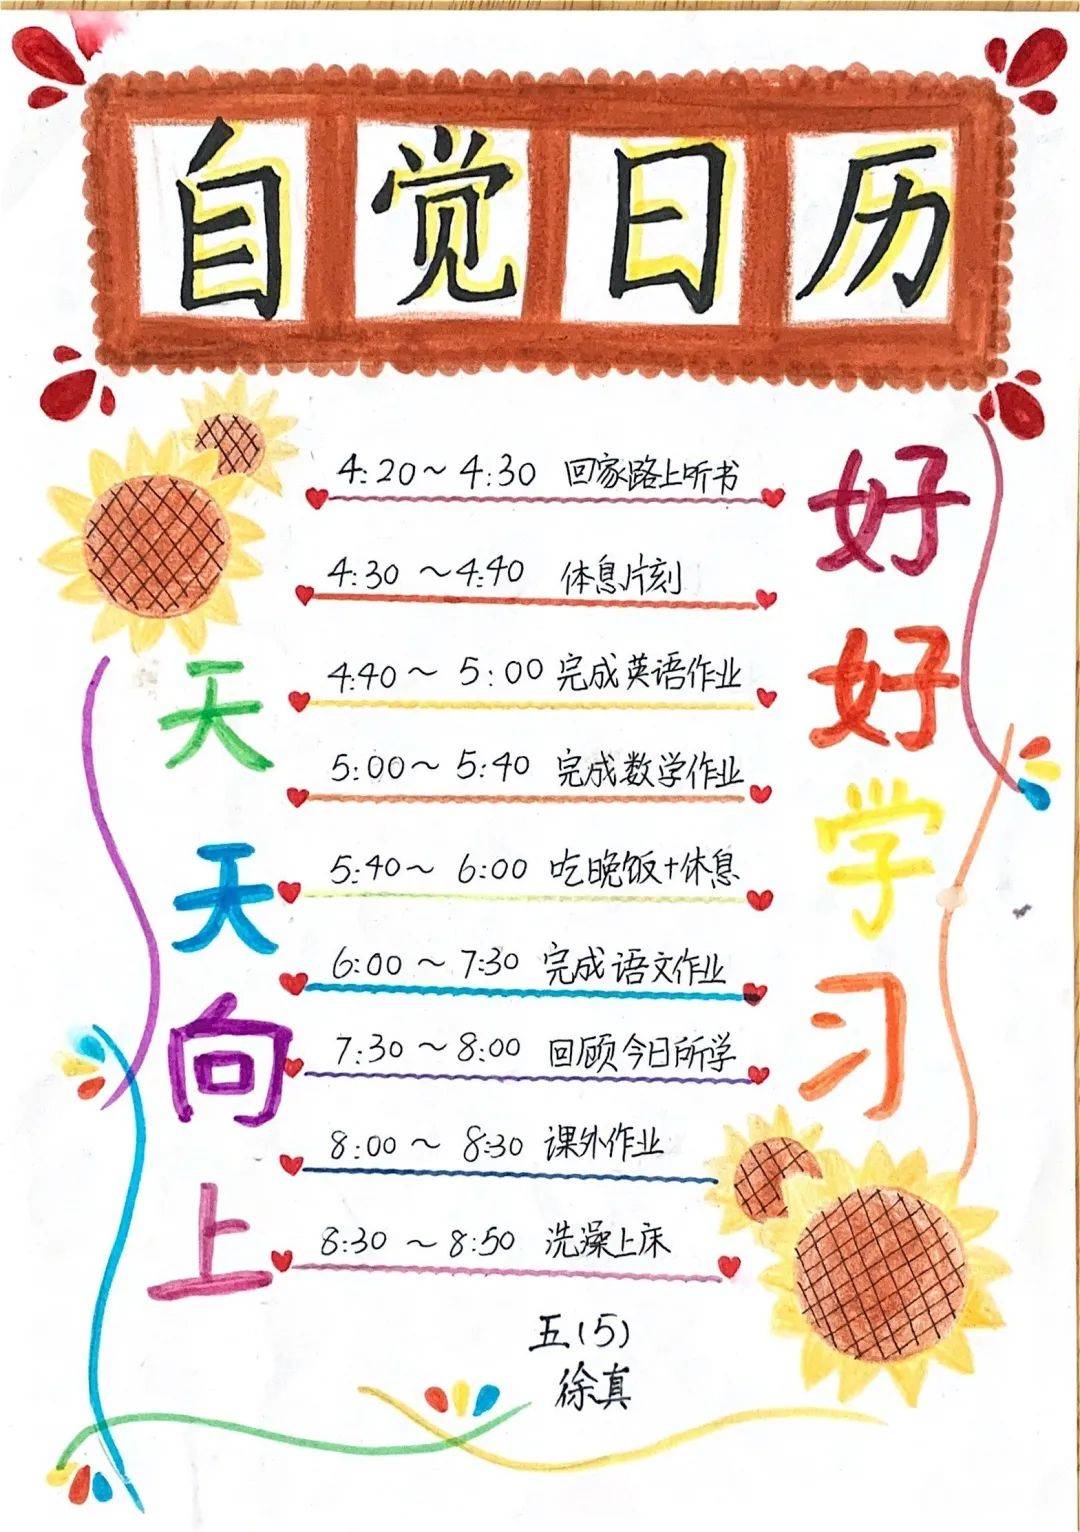 自觉日历
好好学习
天天向上
4:20～4:30 回家路上听书
4:30～4:40 体息片刻
4:40～5:00 完成英语作业
5:00～5:40 完成数学作业
5:40～6:00 吃晚饭+休息
6:00～7:30 完成语文作业
7:30～8:00 回顾今日所学
8:00～8:30 课外作业
8:30～8:50 洗澡上床
五(5)
徐真